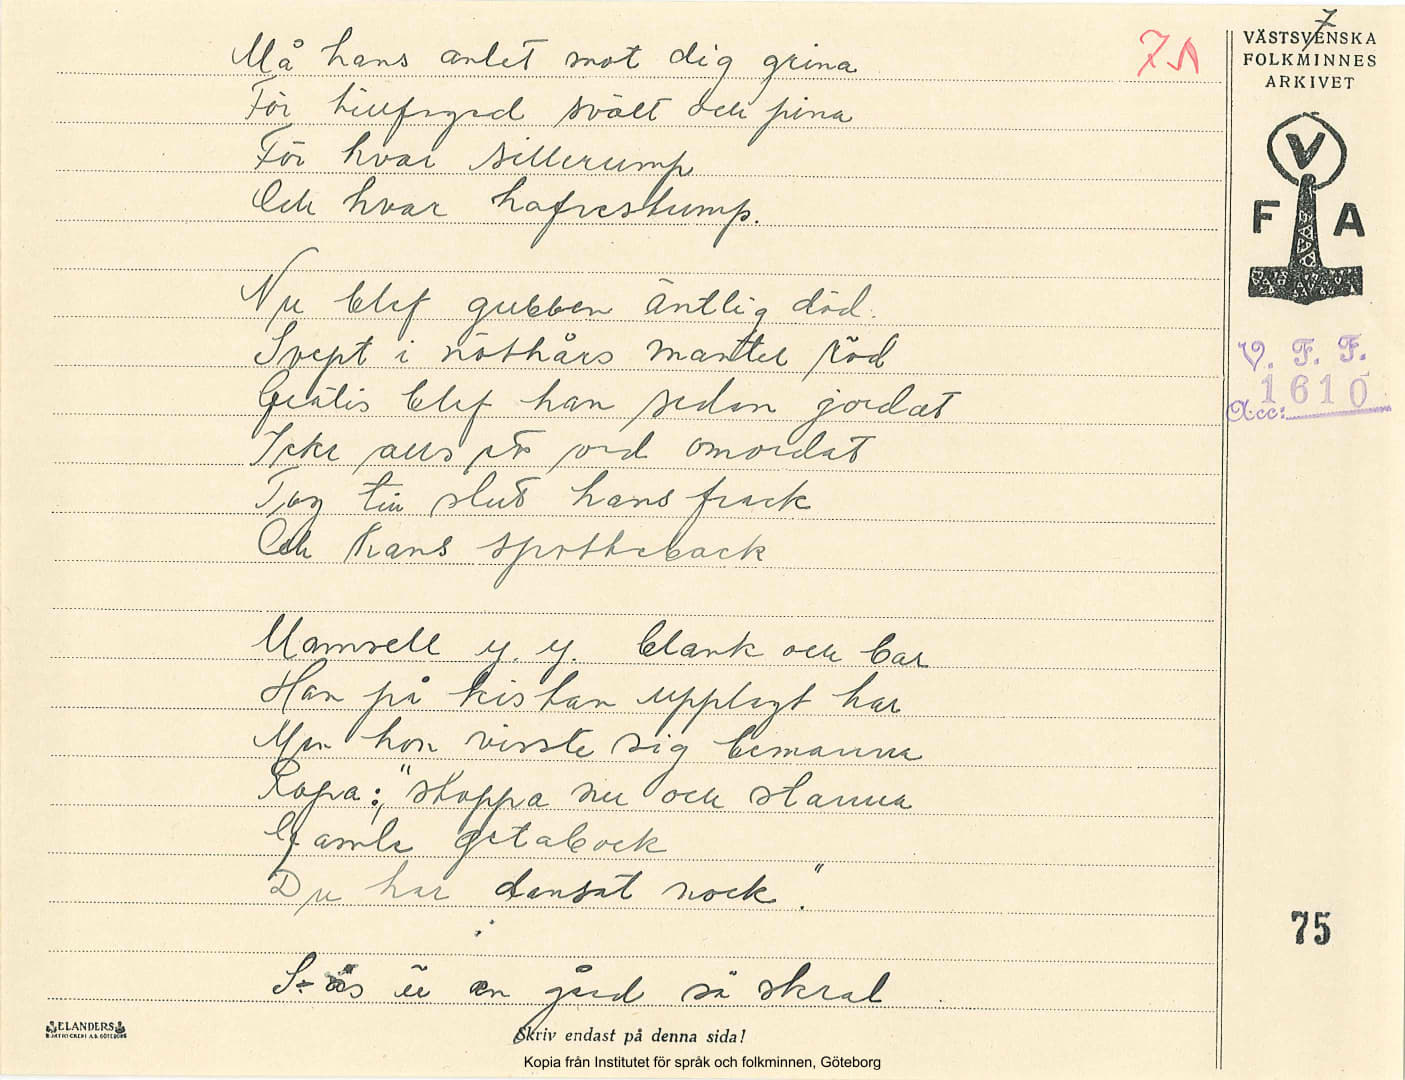 7
7A
VÄSTSVENSKA
FOLKMINNES
ARKIVET
V
F A
V. F. F.
Acc: 1610
Må hans anlet mot dig grina
För tillfogad svält och pina
För hvar sillerump
Och hvar hafrestump.
Nu blef gubben äntlig död.
Svept i nöthårs mantel röd
Gratis blef han sedan jordat
Icke ens på ord omordat
Tog till slut hans frack
Och hans spotteback
Mamsell y. y. blank och bar
Han på kistan upplagt har
Men hon visste sig bemanna
Ropa: "stoppa nu och stanna
Gamle getabock
Du har dansat nock."
S-ås är en gård så skral
75
ELANDERS
Skriv endast på denna sida!
Kopia från Institutet för språk och folkminnen, Göteborg